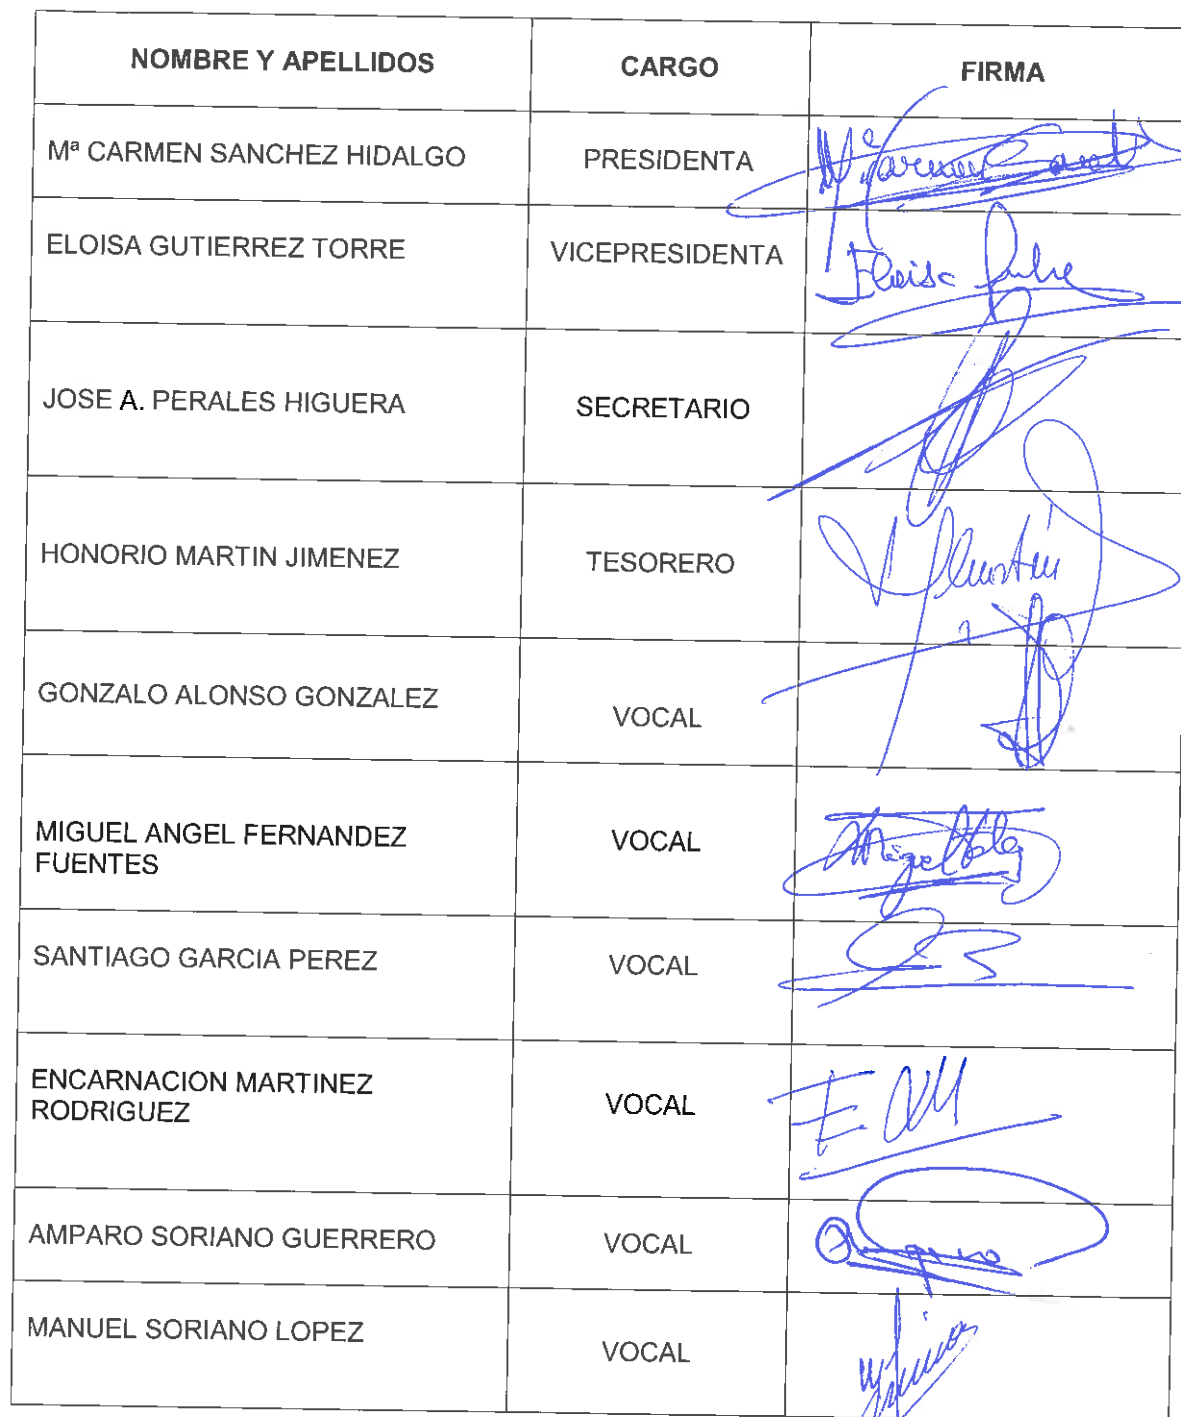 NOMBRE Y APELLIDOS CARGO FIRMA
Mª CARMEN SANCHEZ HIDALGO PRESIDENTA Mª Carmen
ELOISA GUTIERREZ TORRE VICEPRESIDENTA Eloisa
JOSE A. PERALES HIGUERA SECRETARIO
HONORIO MARTIN JIMENEZ TESORERO
GONZALO ALONSO GONZALEZ VOCAL
MIGUEL ANGEL FERNANDEZ
FUENTES
VOCAL Miguel
SANTIAGO GARCIA PEREZ VOCAL
ENCARNACION MARTINEZ
RODRIGUEZ
VOCAL
AMPARO SORIANO GUERRERO VOCAL
MANUEL SORIANO LOPEZ VOCAL